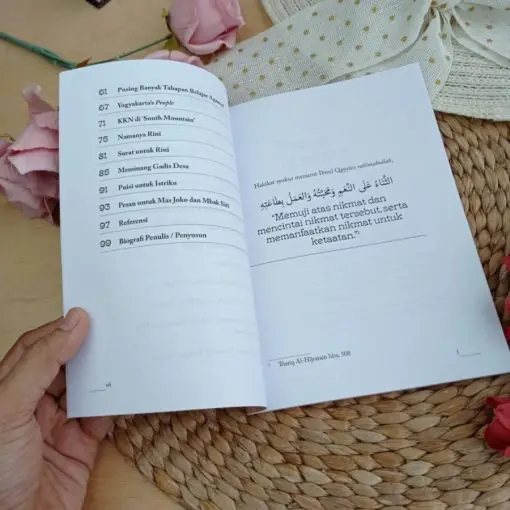 61 Pusing Banyak Tahapan Belajar Agama
67 Yogyakarta's People
71 KKN di 'South Mountain'
75 Namanya Rini
81 Surat untuk Rini
85 Meminang Gadis Desa
91 Puisi untuk Istriku
93 Pesan untuk Mas Joko dan Mbak Siti
97 Referensi
99 Biografi Penulis / Penyusun
Hakikat syukur menurut Ibnul Qayyim rahimahullah,
الثَّنَاءُ عَلَى النِّعَمِ وَمَحَبَّتُهُ وَالعَمَلُ بِطَاعَتِهِ
"Memuji atas nikmat dan
mencintai nikmat tersebut, serta
memanfaatkan nikmat untuk
ketaatan."¹
Thariq Al-Hijratain hlm. 508